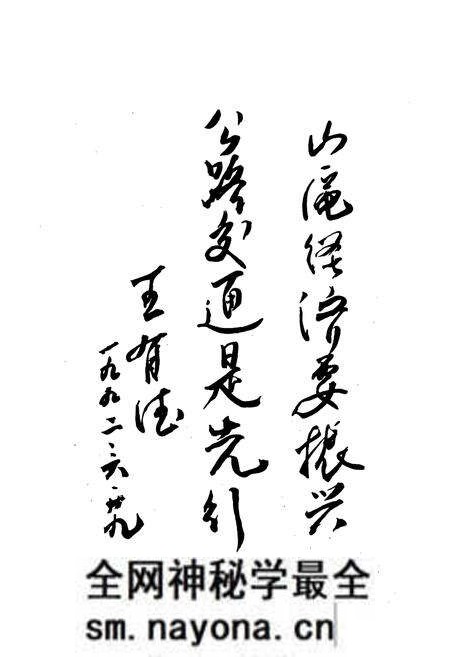 山经济要振兴
公路交通是先行
王有德
一九九二·六·廿九
全网神秘学最全
sm.nayona.cn